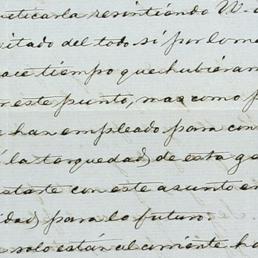 acticarla resistiendo U. a
uitado del todo si por lo me
ace tiempo que hubiéram
n este punto, mas como p
e han empleado para con
i la terquedad de esta ge
astarte con este asunto en
idad para lo futuro.
e solo están al corriente ha